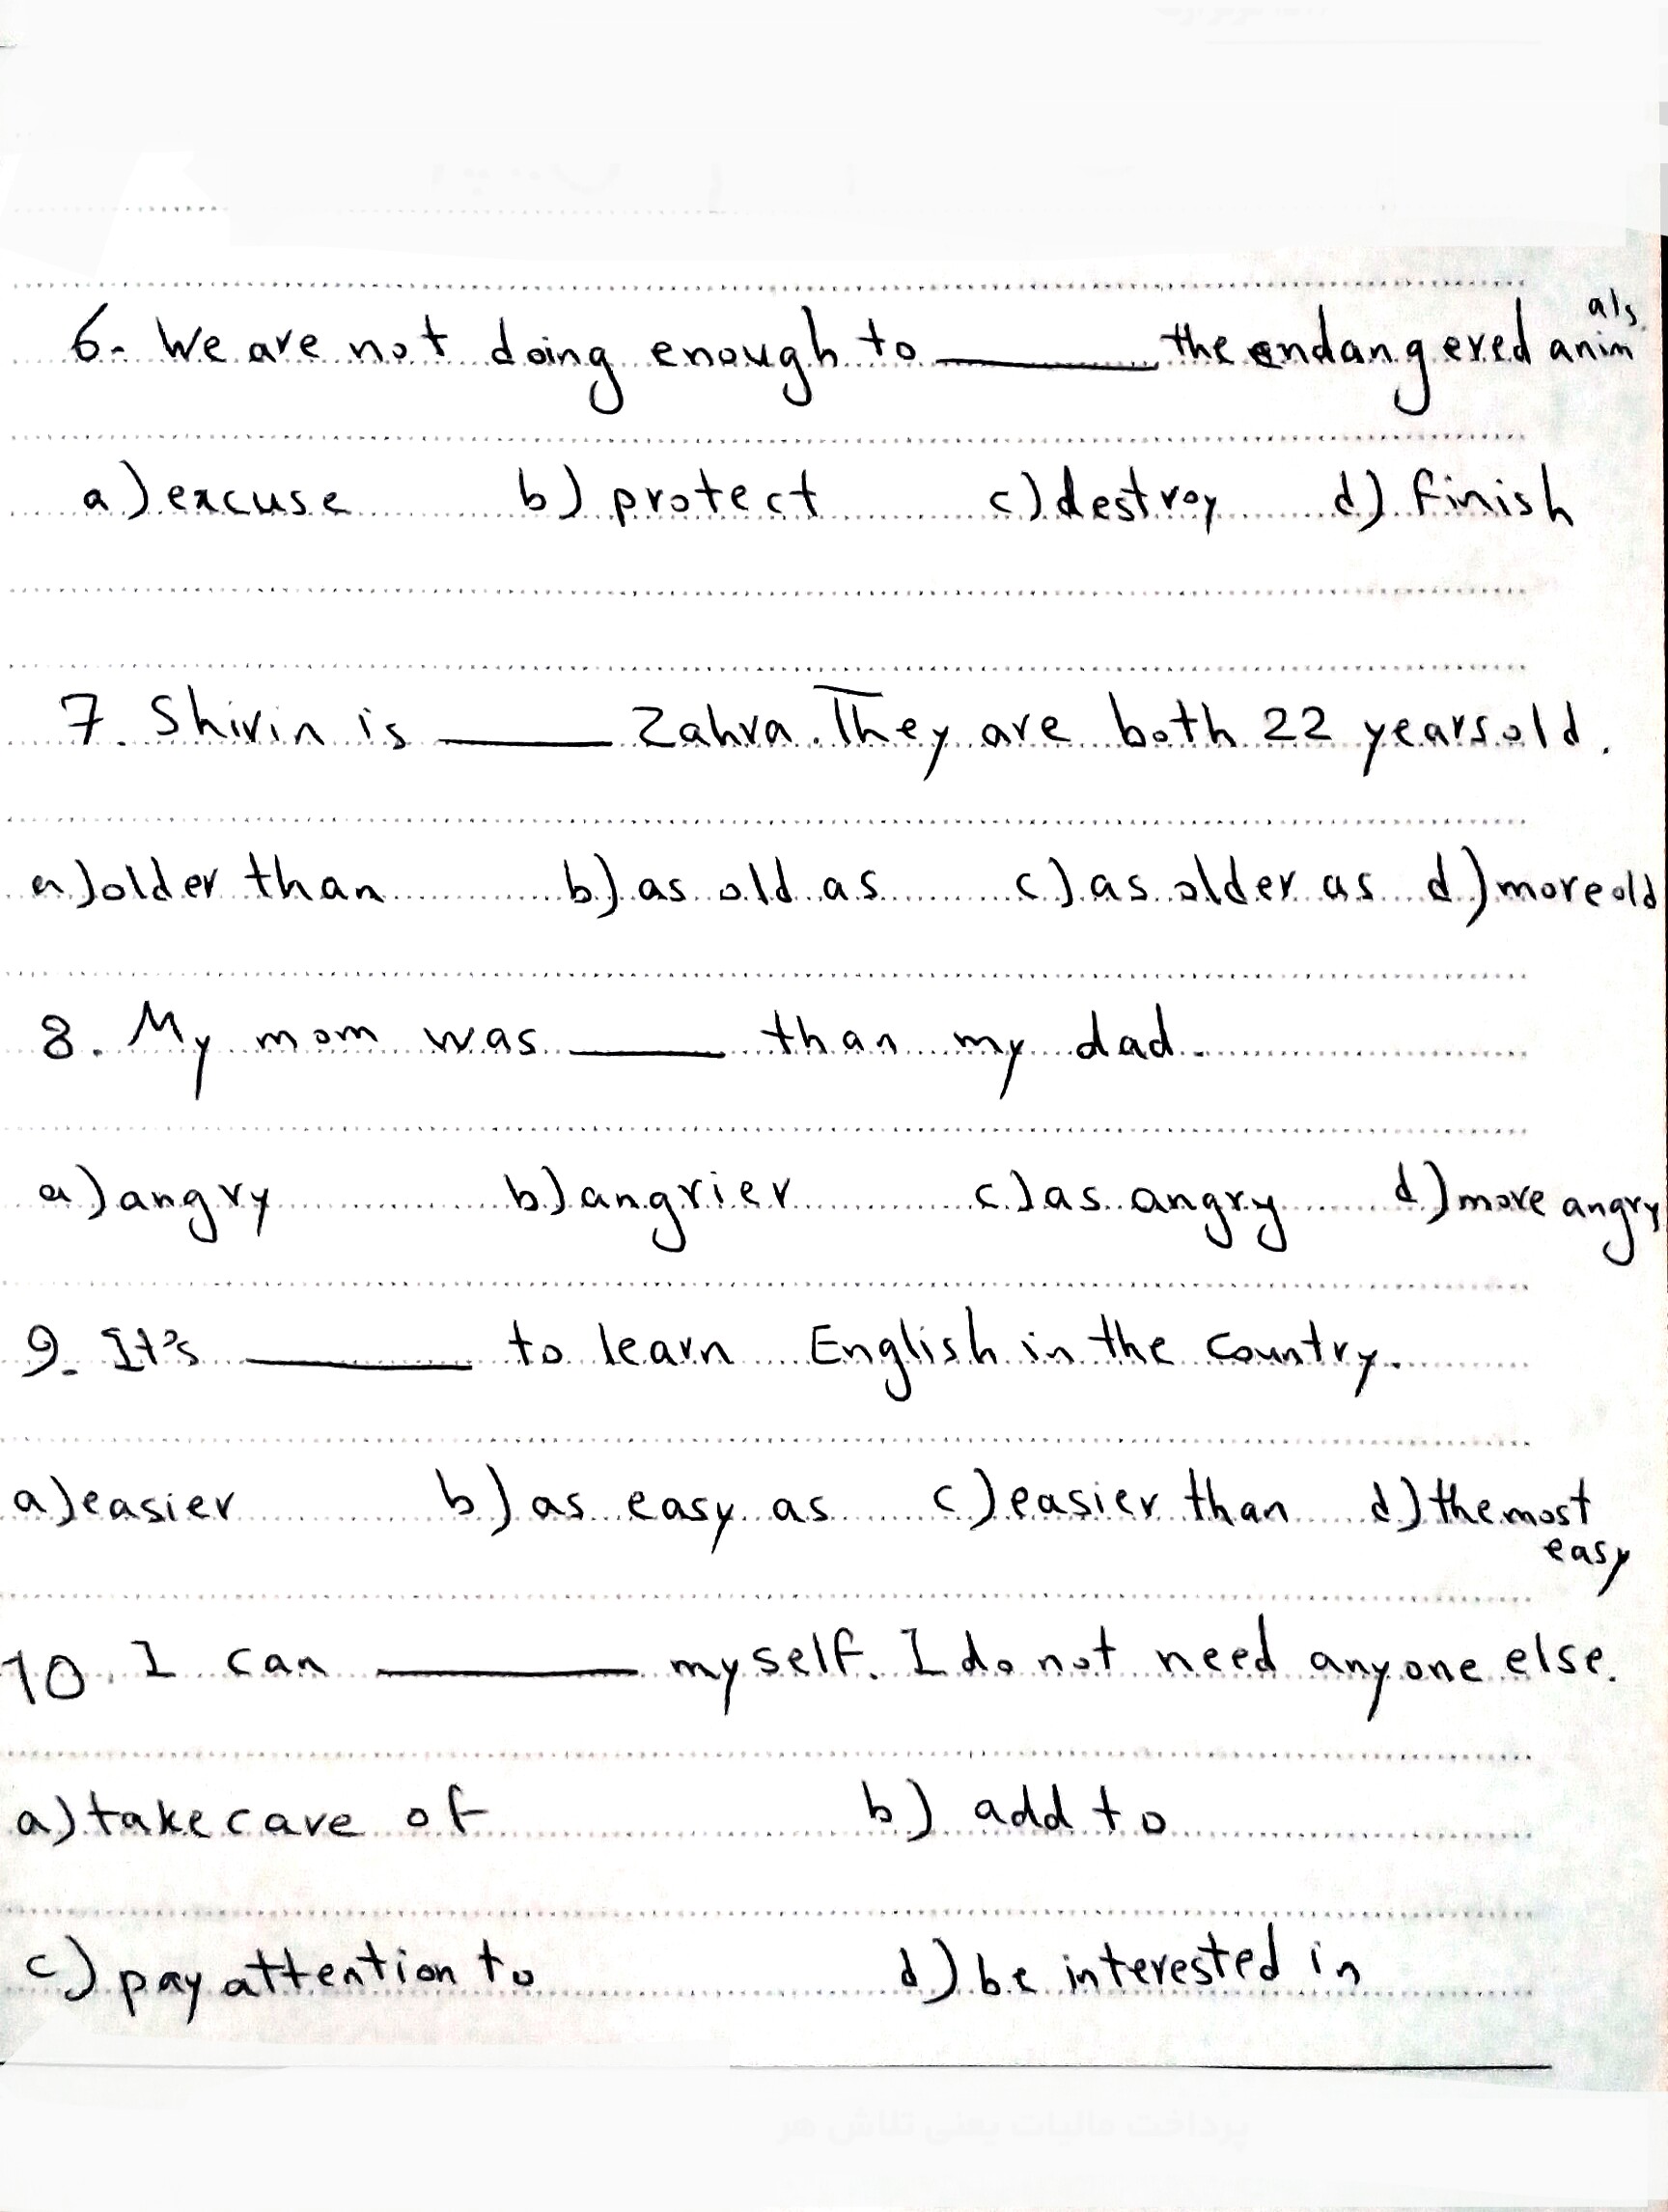 6- We are not doing enough to ______ the endangered animals.
a) excuse b) protect c) destroy d) finish
7. Shirin is ______ Zahra. They are both 22 years old.
a) older than b) as old as c) as older as d) more old
8. My mom was ______ than my dad.
a) angry b) angrier c) as angry d) more angry
9. It's ______ to learn English in the country.
a) easier b) as easy as c) easier than d) the most easy
10. I can ______ myself. I do not need anyone else.
a) take care of b) add to
c) pay attention to d) be interested in